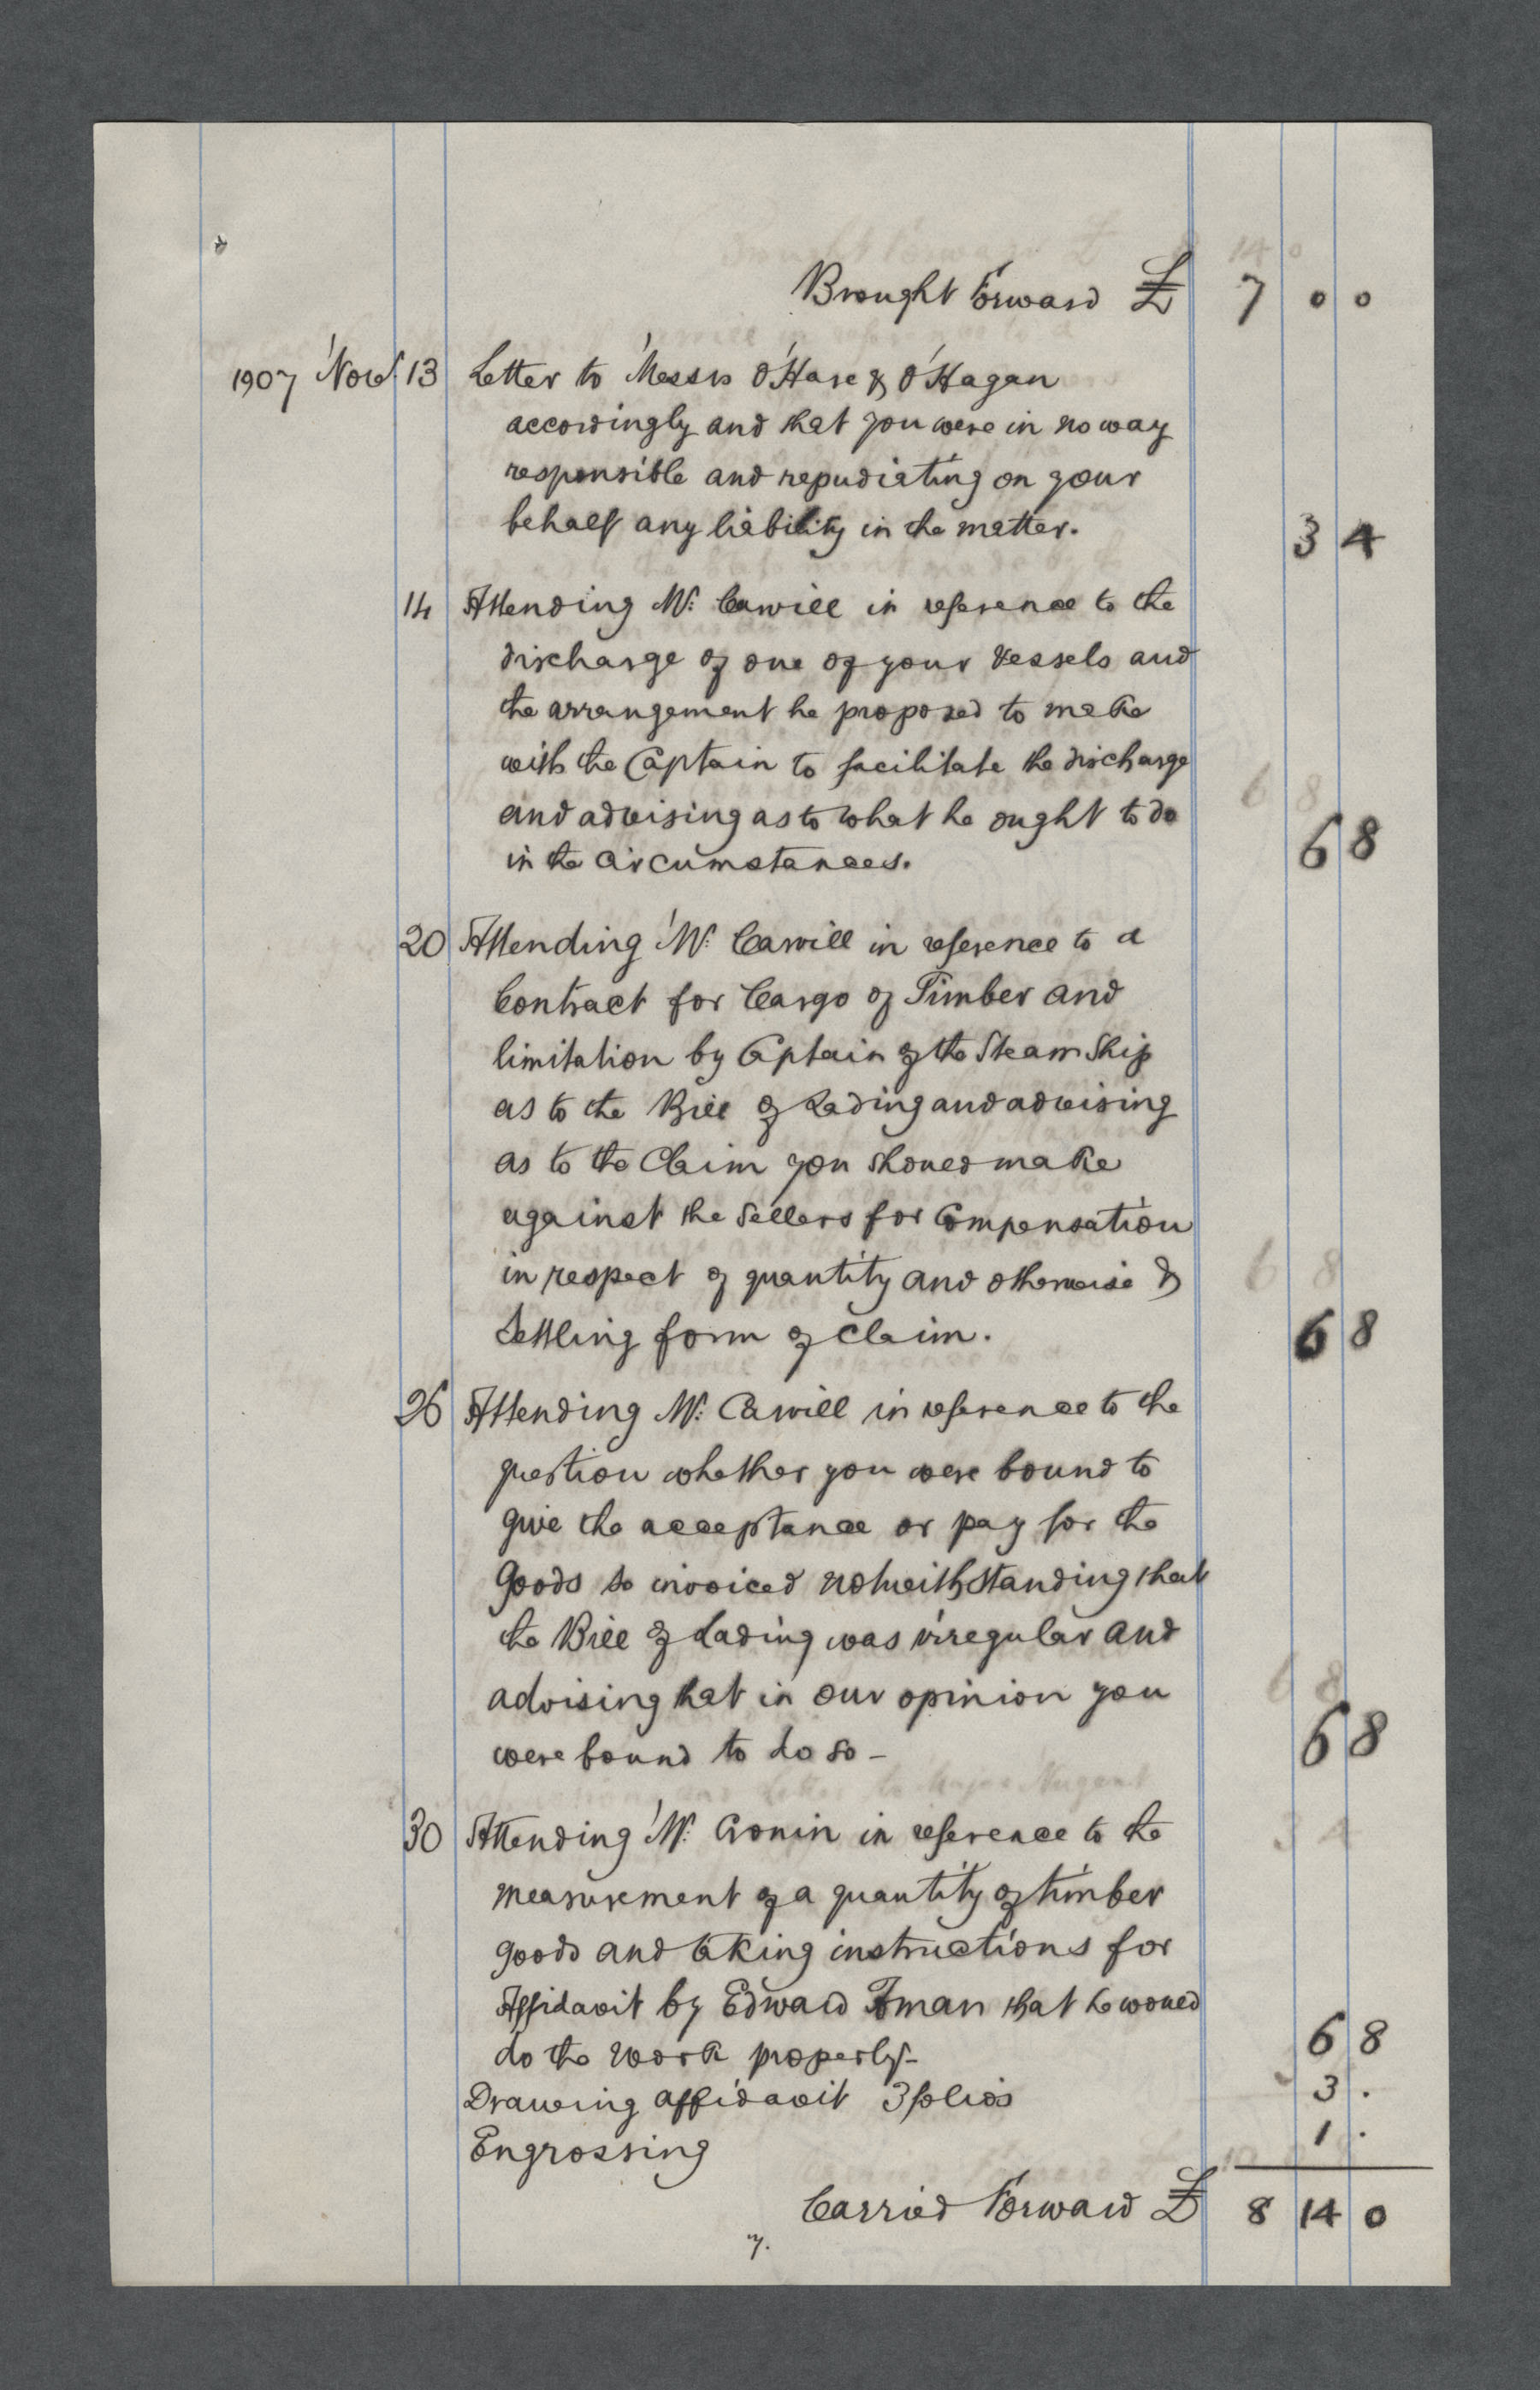 Brought Forward £ 7 0 0
1907 Nov. 13 Letter to Messrs O'Hare & O'Hagan
accordingly and that you were in no way
responsible and repudiating on your
behalf any liability in the matter. 3 4
14 Attending Mr. Carvill in reference to the
discharge of one of your Vessels and
the arrangement he proposed to make
with the Captain to facilitate the discharge
and advising as to what he ought to do
in the circumstances. 6 8
20 Attending Mr. Carvill in reference to a
Contract for Cargo of Timber and
limitation by Captain of the Steam Ship
as to the Bill of Lading and advising
as to the Claim you should make
against the Sellers for Compensation
in respect of quantity and otherwise &
Settling form of Claim. 6 8
26 Attending Mr. Carvill in reference to the
question whether you were bound to
give the acceptance or pay for the
Goods so invoiced notwithstanding that
the Bill of Lading was irregular and
advising that in our opinion you
were bound to do so - 6 8
30 Attending Mr. Cronin in reference to the
measurement of a quantity of timber
goods and taking instructions for
Affidavit by Edward that he would
do the work properly- 6 8
Drawing affidavit 3 folios 3 .
Engrossing 1 .
Carried Forward £ 8 14 0
7.